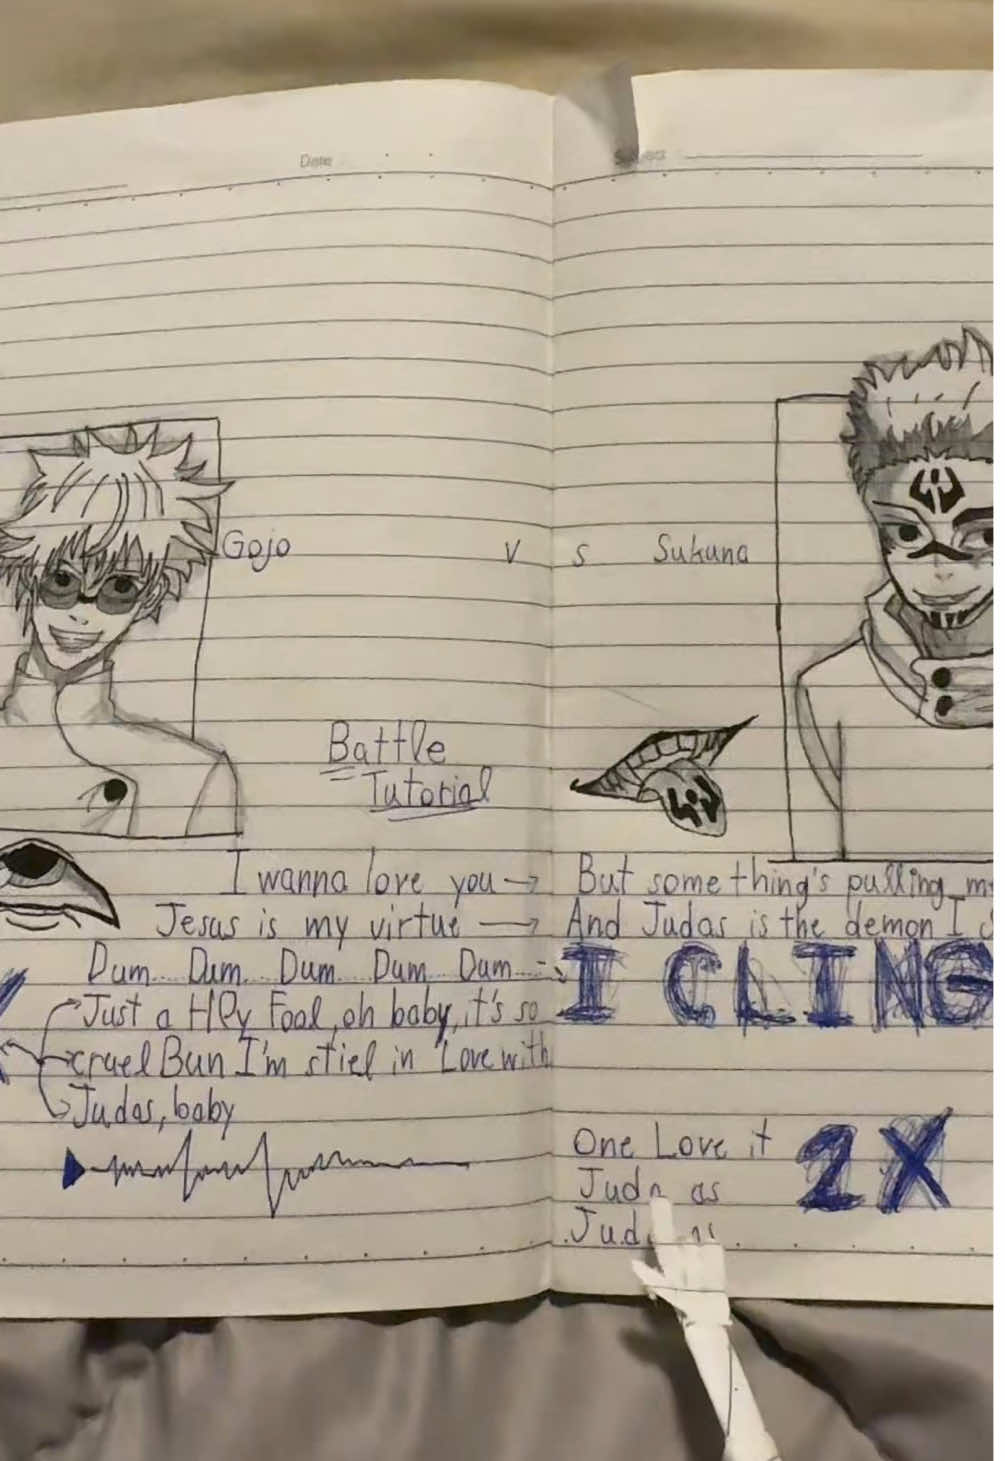 Date
Gojo
V S
Sukuna
Battle
Tutorial
I wanna love you → But something's pulling
Jesus is my virtue → And Judas is the demon I
Dum.... Dum.... Dum.... Dum.... Dum....
I CLING
Just a HPy Fool, oh baby, it's so
cruel Bun I'm stiel in Love with
Judas, baby
One Love it
2X
Juda as